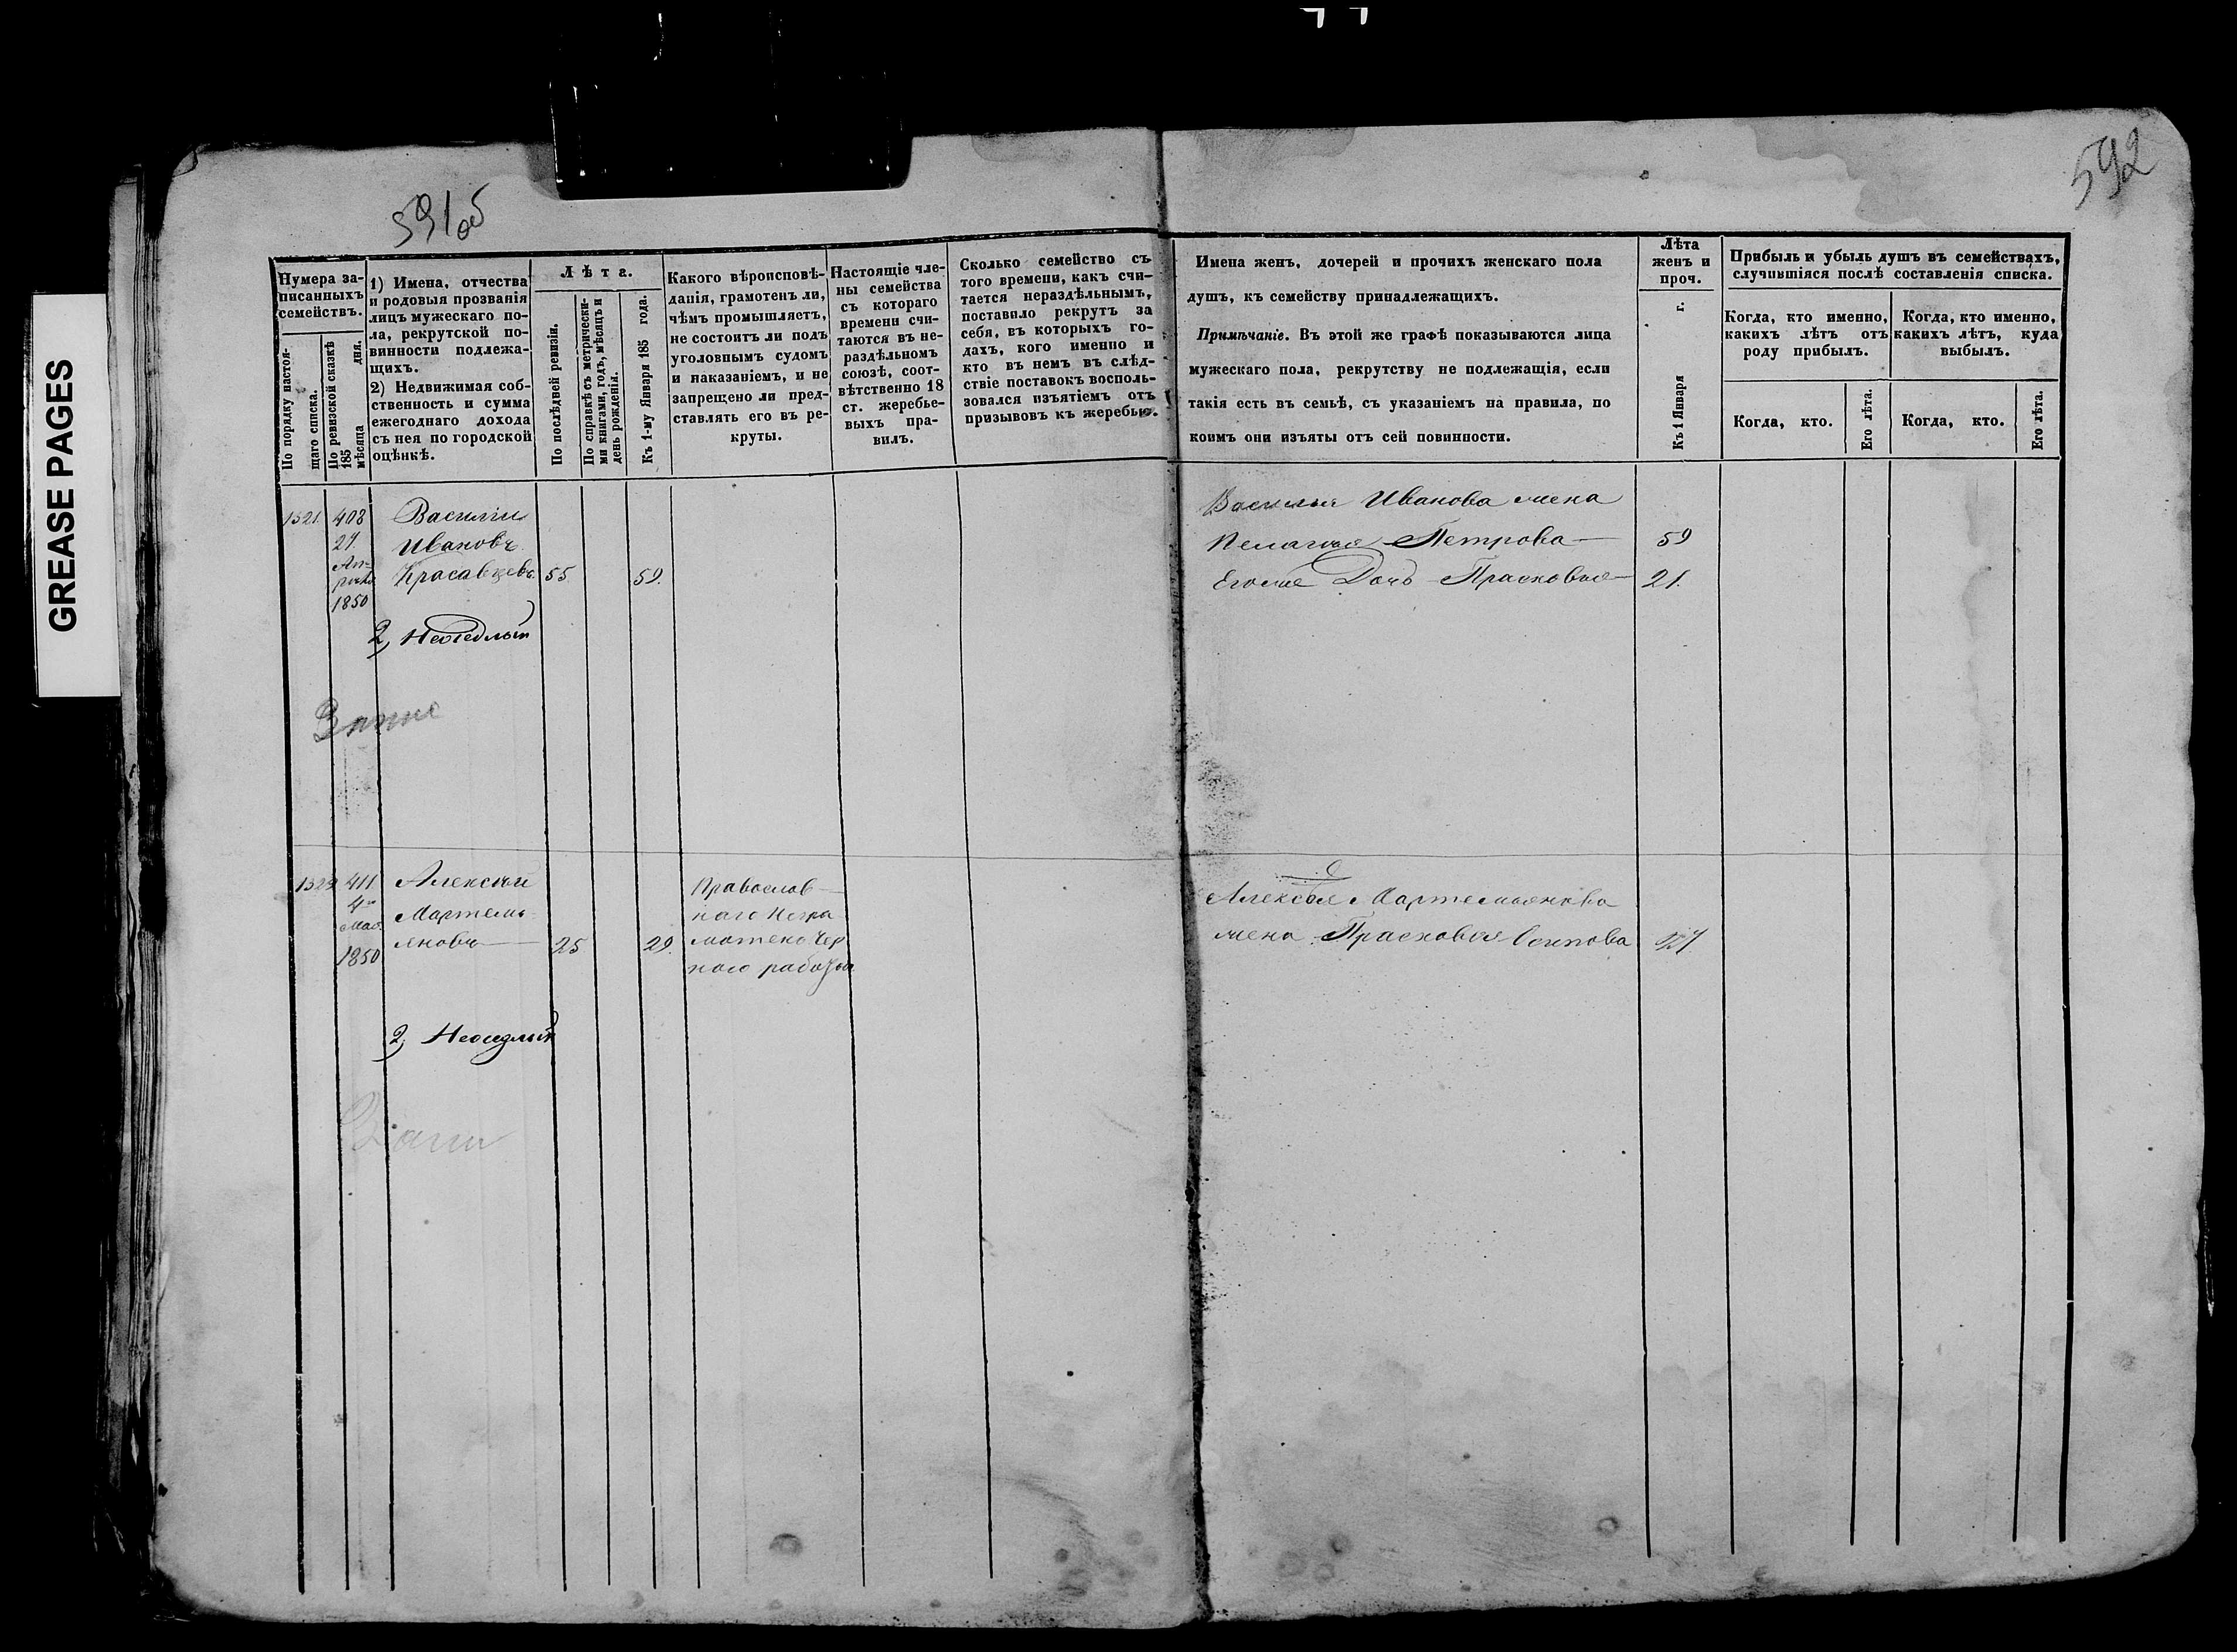 GREASE PAGES
591об
592
Нумера записанныхъ семействъ.
По порядку настоящаго списка.
По ревизской сказкѣ 185 мѣсяца дня.
1) Имена, отчества
и родовыя прозванія
лицъ мужескаго по-
ла, рекрутской по-
винности подлежа-
щихъ.
2) Недвижимая соб-
ственность и сумма
ежегоднаго дохода
съ нея по городской
оцѣнкѣ.
Лѣта.
По послѣдней ревизіи.
По справкѣ съ метрически-
ми книгами, годъ, мѣсяцъ и
день рожденія.
Къ 1-му Января 185 года.
Какого вѣроисповѣ-
данія, грамотенъ ли,
чѣмъ промышляетъ,
не состоитъ ли подъ
уголовнымъ судомъ
и наказаніемъ, и не
запрещено ли пред-
ставлять его въ ре-
круты.
Настоящіе чле-
ны семейства
съ котораго
времени счи-
таются въ не-
раздѣльномъ
союзѣ, соот-
вѣтственно 18
ст. жеребье-
выхъ пра-
вилъ.
Сколько семейство съ
того времени, какъ счи-
тается нераздѣльнымъ,
поставило рекрутъ за
себя, въ которыхъ го-
дахъ, кого именно и
кто въ немъ въ слѣд-
ствіе поставокъ восполь-
зовался изъятіемъ отъ
призывовъ къ жеребью.
Имена женъ, дочерей и прочихъ женскаго пола
душъ, къ семейству принадлежащихъ.
Примѣчаніе. Въ этой же графѣ показываются лица
мужескаго пола, рекрутству не подлежащія, если
такія есть въ семьѣ, съ указаніемъ на правила, по
коимъ они изъяты отъ сей повинности.
Лѣта
женъ и
проч.
Къ 1 Января г.
Прибыль и убыль душъ въ семействахъ,
случившіяся послѣ составленія списка.
Когда, кто именно,
какихъ лѣтъ отъ
роду прибылъ.
Когда, кто именно,
какихъ лѣтъ, куда
выбылъ.
Когда, кто.
Его лѣта.
Когда, кто.
Его лѣта.
1521. 408 Василій
Ивановъ
Красавцевъ 55 59.
1850
2, Неоседлый
Василья Иванова жена
Пелагея Петрова 59
Егоже Дочь Прасковья 21.
411 Алексѣй
Мартемь
яновъ 25 29.
1850
Православ
наго Негра
мотенъ Чер
ною работою
2, Неоседлый
Алексѣя Мартемьянова
жена Прасковья Осипова 27